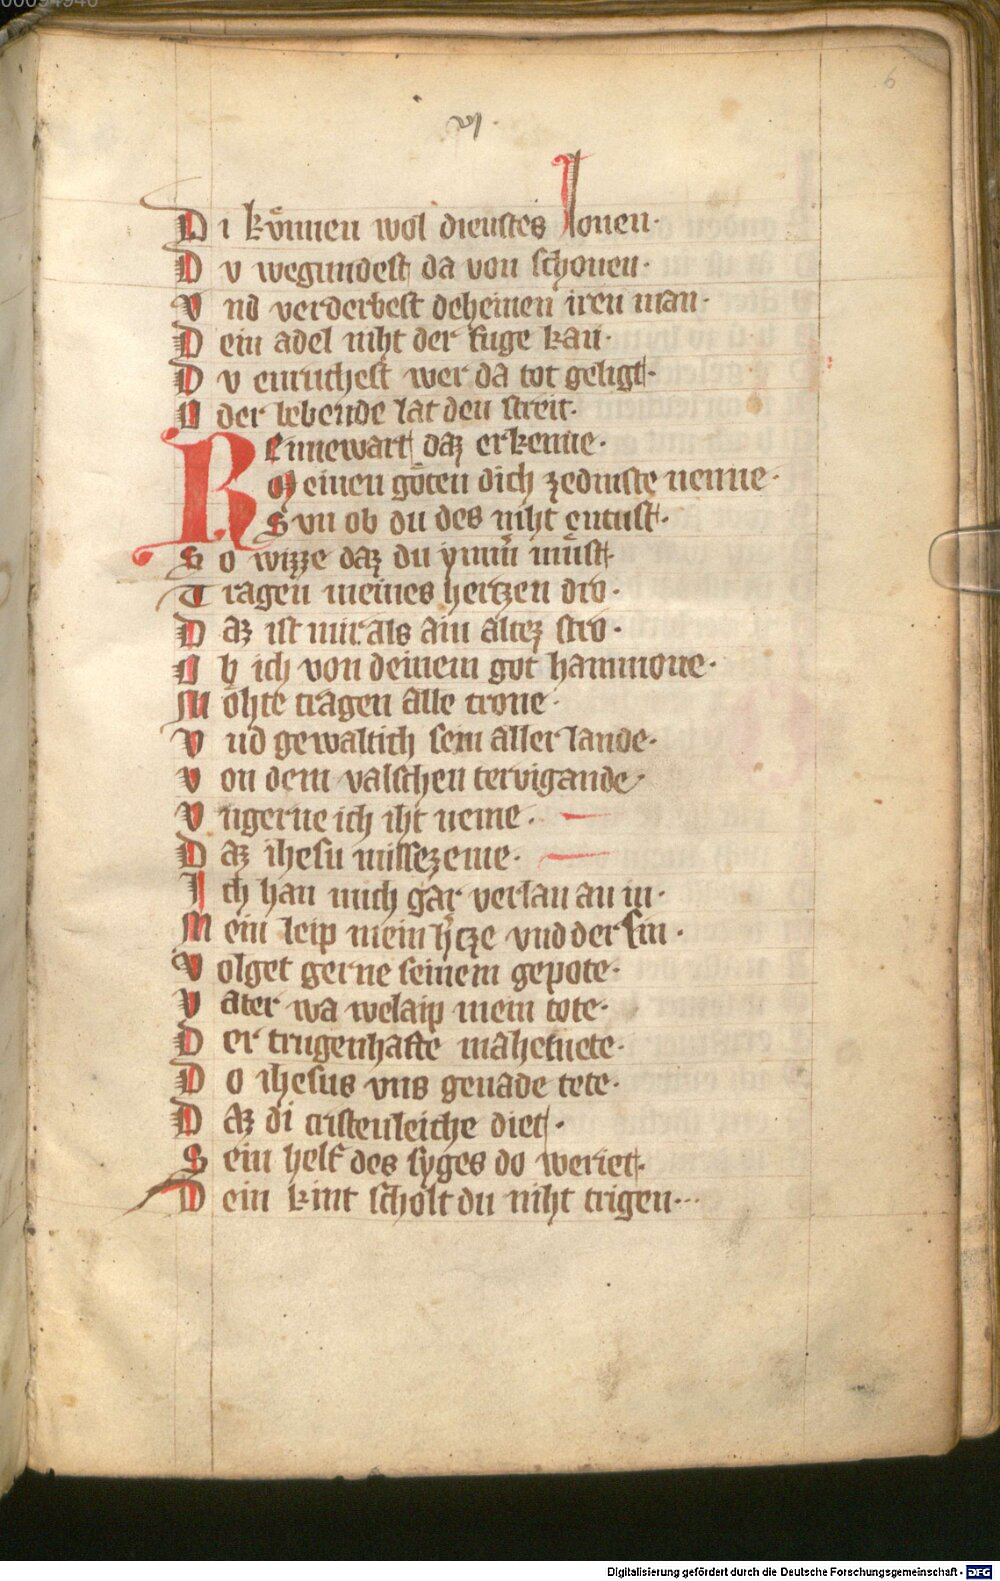 00094946
6
vi.
Di kuͦnnen wol dienstes lonen·
Dv wegundest da von schonen·
Vnd verderbest deheinen iren man·
Dein adel niht der fuge kan·
Dv enruchest wer da tot geligt·
Oder lebende lat den streit·
Rennewart daz erkenne·
Meinen goͤten dich zedinste nenne·
Svn ob du des niht entust·
So wizze daz du ymm̄ muͤst
Tragen meines hertzen dro·
Daz ist mir als ain altez stro·
Ob ich von deinem got hammone·
Mohte tragen alle crone·
Vnd gewaltich sein aller lande·
Von dem valschen tervigande·
Vngerne ich iht neme·
Daz ihesu missezeme·
Ich han mich gar verlan an in·
Mein leip mein h̄tze vnd der sin·
Volget gerne seinem gepote·
Vater wa welaip mein tote·
Der trugenhafte mahemete·
Do ihesus vns genade tete·
Daz di cristenleiche diet·
Sein helf des syges do weriet·
Dein kint scholt du niht trigen···
Digitalisierung gefördert durch die Deutsche Forschungsgemeinschaft - DFG